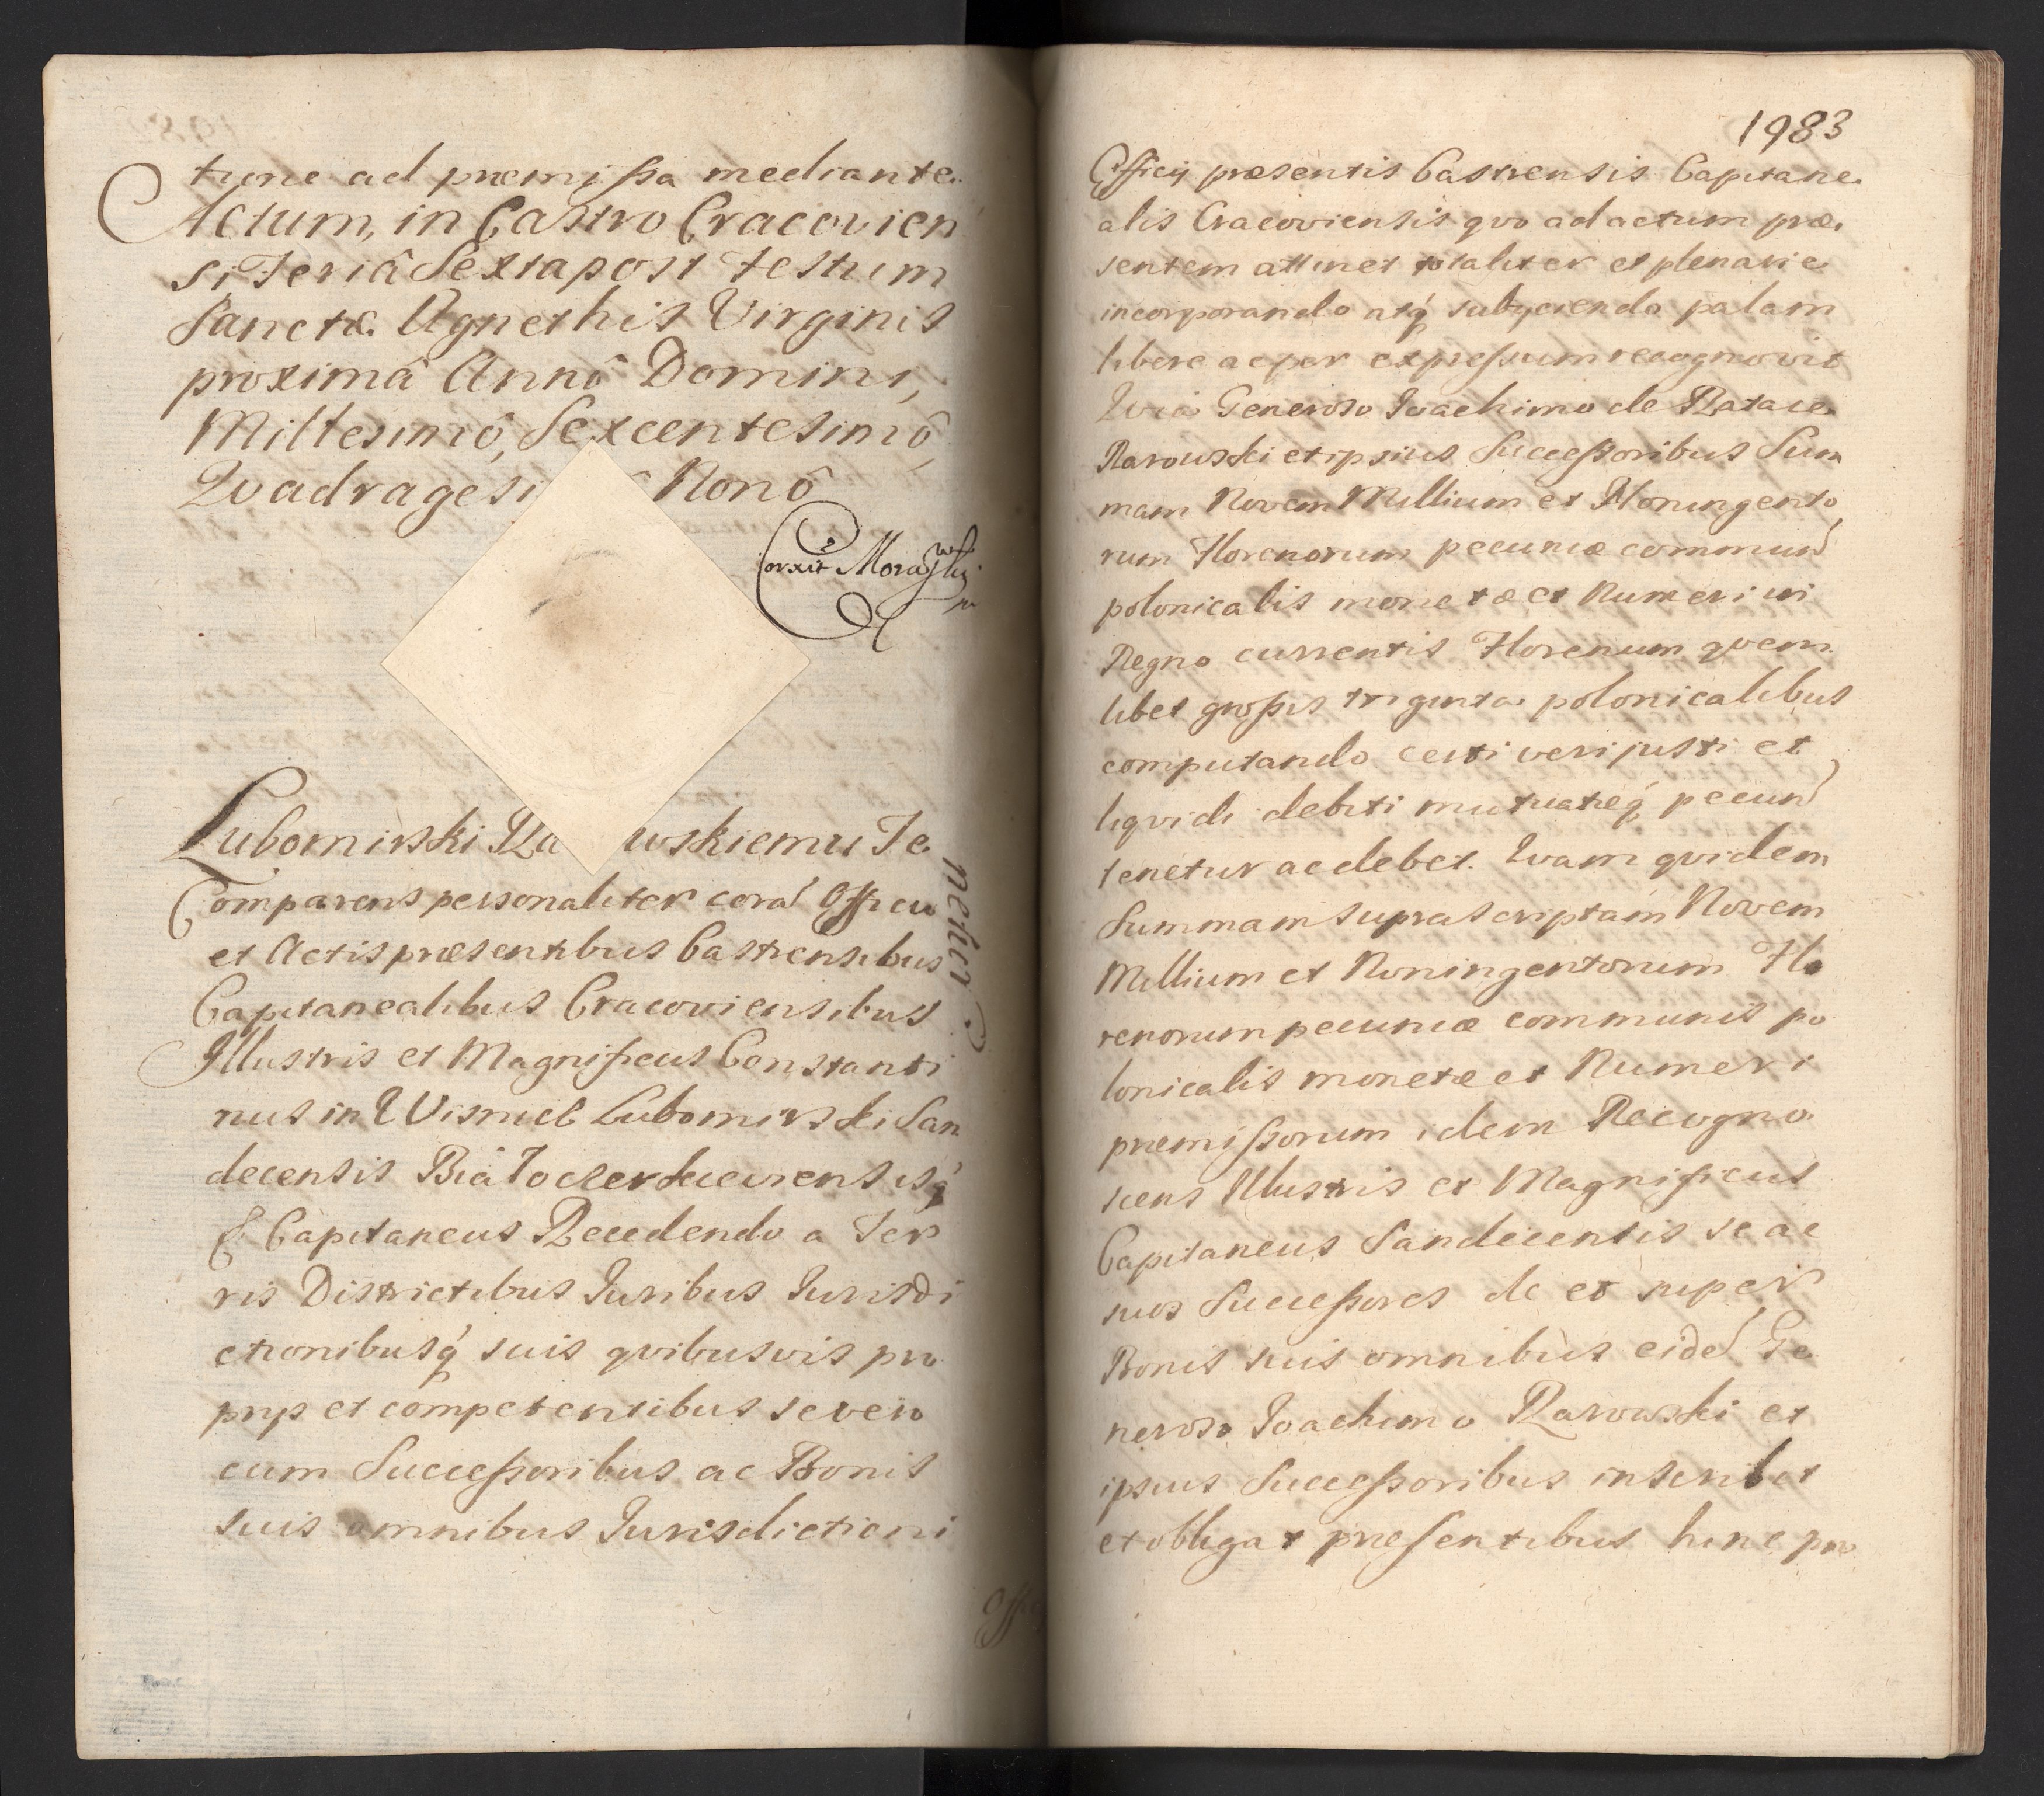 tione ad præmissa mediante.
Actum, in Castro Cracovien
si Feriâ Sexta post Festum
Sanctæ Agnethis Virginis
proximâ Annô Domini,
Millesimô, Sexcentesimô,
Qvadragesi ô Nonô
Corexit
Lubomirski Ra wskiemu Te
netur
Comparens personaliter corā Officio
et Actis præsentibus Castrensibus
Capitanealibus Cracoviensibus
Illustris et Magnificus Constanti
nus in Wisnicz Lubomirski San
decensis Białocerkiewiensisq́
& Capitaneus Recedendo a Ter
ris Districtibus Juribus Jurisdi
ctionibusq́ suis qvibusvis pro
prijs et competentibus se vero
cum Successoribus ac Bonis
suis omnibus Jurisdictioni
Offi
1983
Officij præsentis Castrensis Capitane
alis Cracoviensis qvo ad actum præ
sentem attinet totaliter et plenarie
incorporando atq́ subijciendo palam
libere ac per expressum recognovit
Qvia Generoso Joachimo de
Rarowski et ipsius Successoribus Sum
mam Novem Millium et Noningento
rum Florenorum pecuniæ commun
polonicalis monetæ et Numeri in
Regno currentis Florenum qvem
libet grossis triginta polonicalibus
computando certi veri justi et
liqvidi debiti mutuatæq́ pecun
tenetur ac debet. Qvam qvidem
Summam suprascriptam Novem
Millium et Noningentorum Flo
renorum pecuniæ communis po
lonicalis monetæ et Numeri
præmissorum idem Recogno
scens Illustris et Magnificus
Capitaneus Sandecensis se ac
suos Successores de et super
Bonis suis omnibus eidē Ge
neroso Joachimo Rarowski et
ipsius Successoribus inscribit
et obligat præsentibus hinc pro